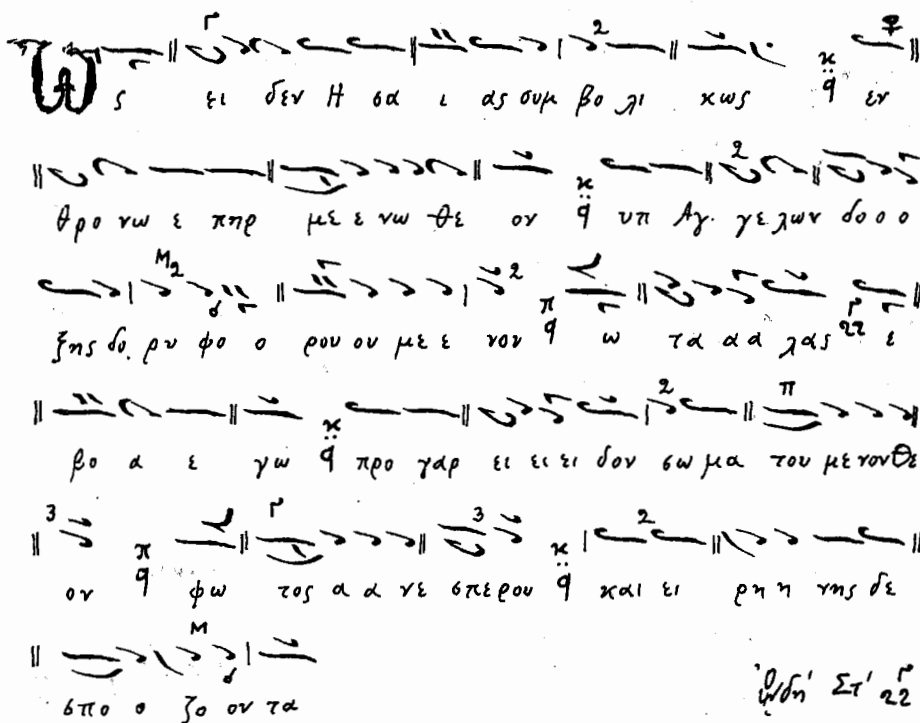 Ως ει δεν Η σα ι ας συμ βο λι κως εν
θρο νω ε πηρ με ε νω θε ον υπ Αγ. γε λων δο ο ο
ξης δο. ρυ φο ο ρου ου με ε νον ω τα α α λας ε
βο α ε γω προ γαρ ει ει ει δον σω μα του με νον Θε
ον φω τος α α νε σπερου και ει ρη η νης δε
σπο ο ζο ον τα
Ωδη' Στ'